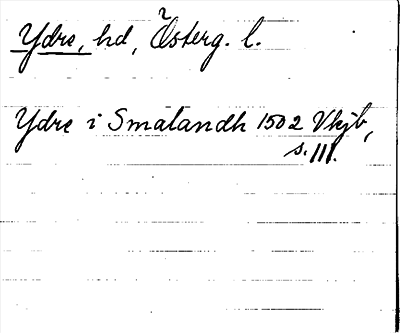 Ydre, hd, Österg. l.
Ydre i Smalandh 1502 Vkjb,
s. 111.